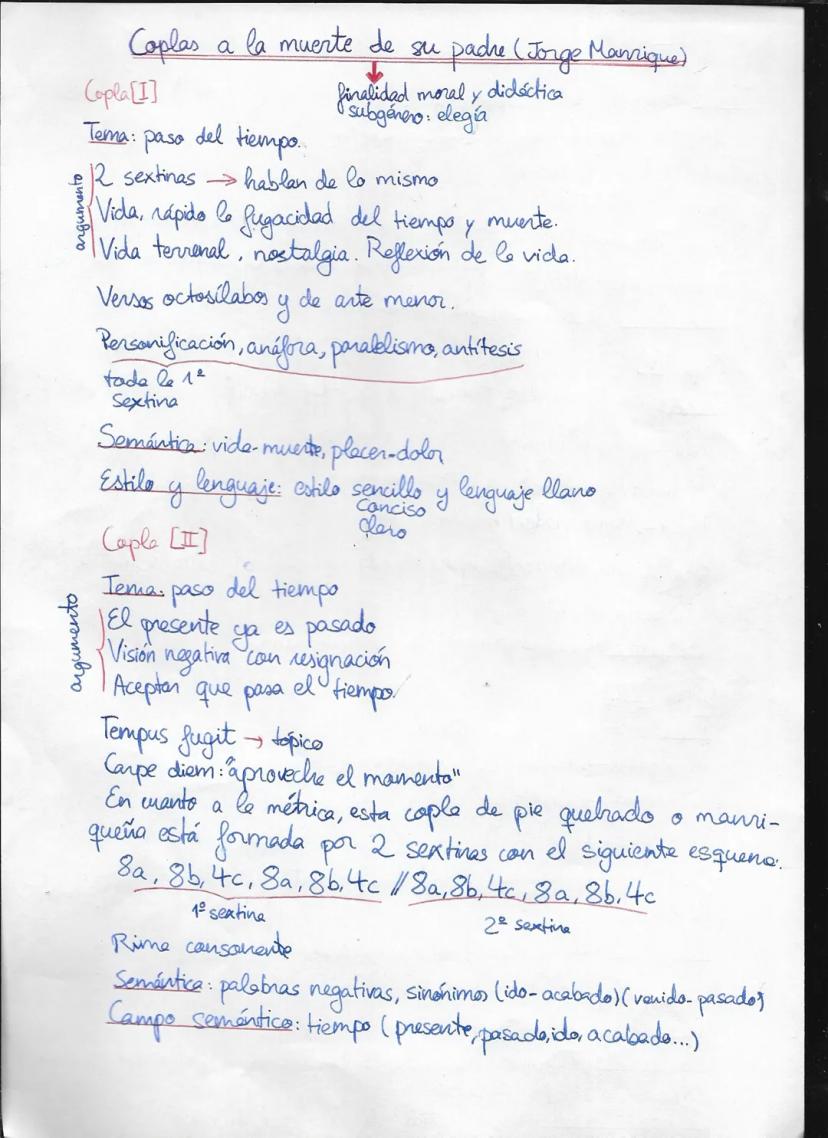 Coplas a la muerte de su padre (Jorge Manrique)
finalidad moral y didáctica
subgénero: elegía
Copla [I]
Tema: paso del tiempo.
argumento
2 sextinas → hablan de lo mismo
Vida, rápido la fugacidad del tiempo y muerte.
Vida terrenal, nostalgia. Reflexión de la vida.
Versos octosílabos y de arte menor.
Personificación, anáfora, paralelismo, antítesis
toda la 1ª
sextina
Semántica: vida-muerte, placer-dolor
Estilo y lenguaje: estilo sencillo y lenguaje llano
Conciso
Claro
Copla [II]
Tema: paso del tiempo
argumento
El presente ya es pasado
Visión negativa con resignación
Aceptan que pasa el tiempo.
Tempus fugit → tópico
Carpe diem: "aprovecha el momento"
En cuanto a la métrica, esta copla de pie quebrado o manri-
queña está formada por 2 sextinas con el siguiente esquema:
8a, 8b, 4c, 8a, 8b, 4c // 8a, 8b, 4c, 8a, 8b, 4c
1ª sextina
2ª sextina
Rima consonante
Semántica: palabras negativas, sinónimos (ido-acabado) (venido-pasado)
Campo semántico: tiempo (presente, pasado, ido, acabado...)